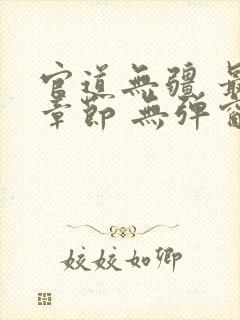 官道無疆 最
章節 無彈窗
姣姣如卿